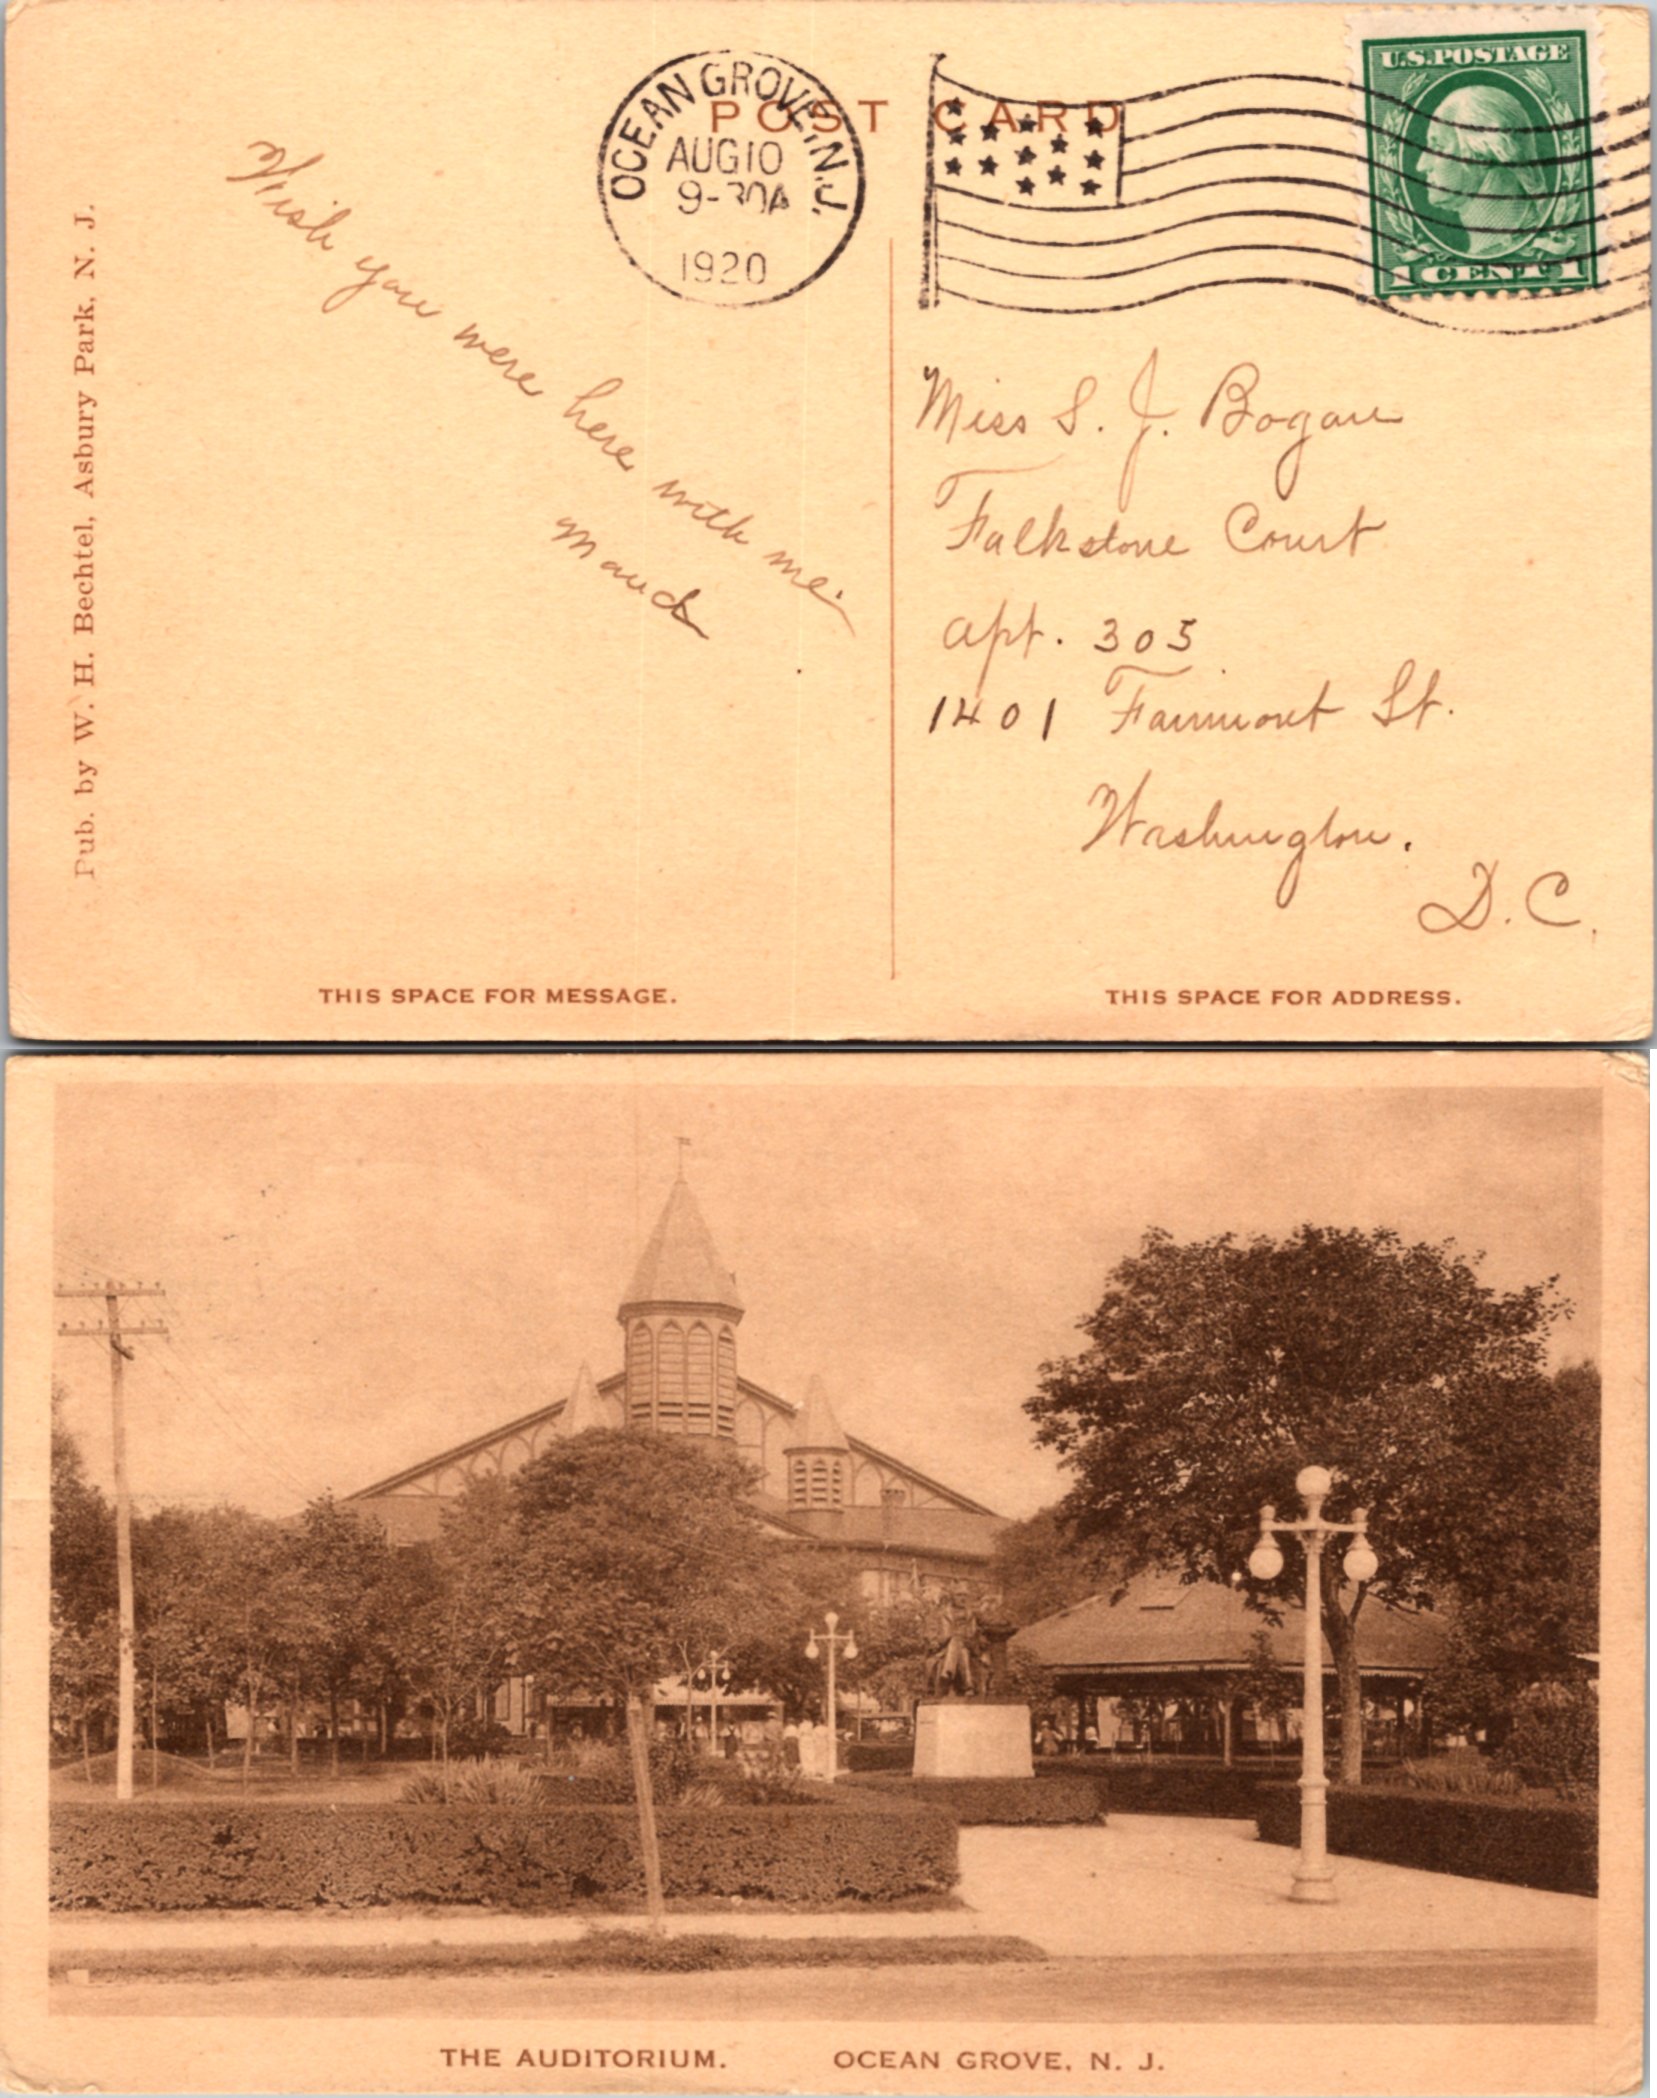 POST CARD
OCEAN GROVE, N.J.
AUG 10
9-30A
1920
U.S. POSTAGE
1 CENT 1
Pub. by W. H. Bechtel, Asbury Park, N. J.
Wish you were here with me.
Maude
Miss S. J. Bogan
Falkstone Court
apt. 305
1401 Fairmont St.
Washington.
D.C.
THIS SPACE FOR MESSAGE.
THIS SPACE FOR ADDRESS.
THE AUDITORIUM. OCEAN GROVE, N. J.